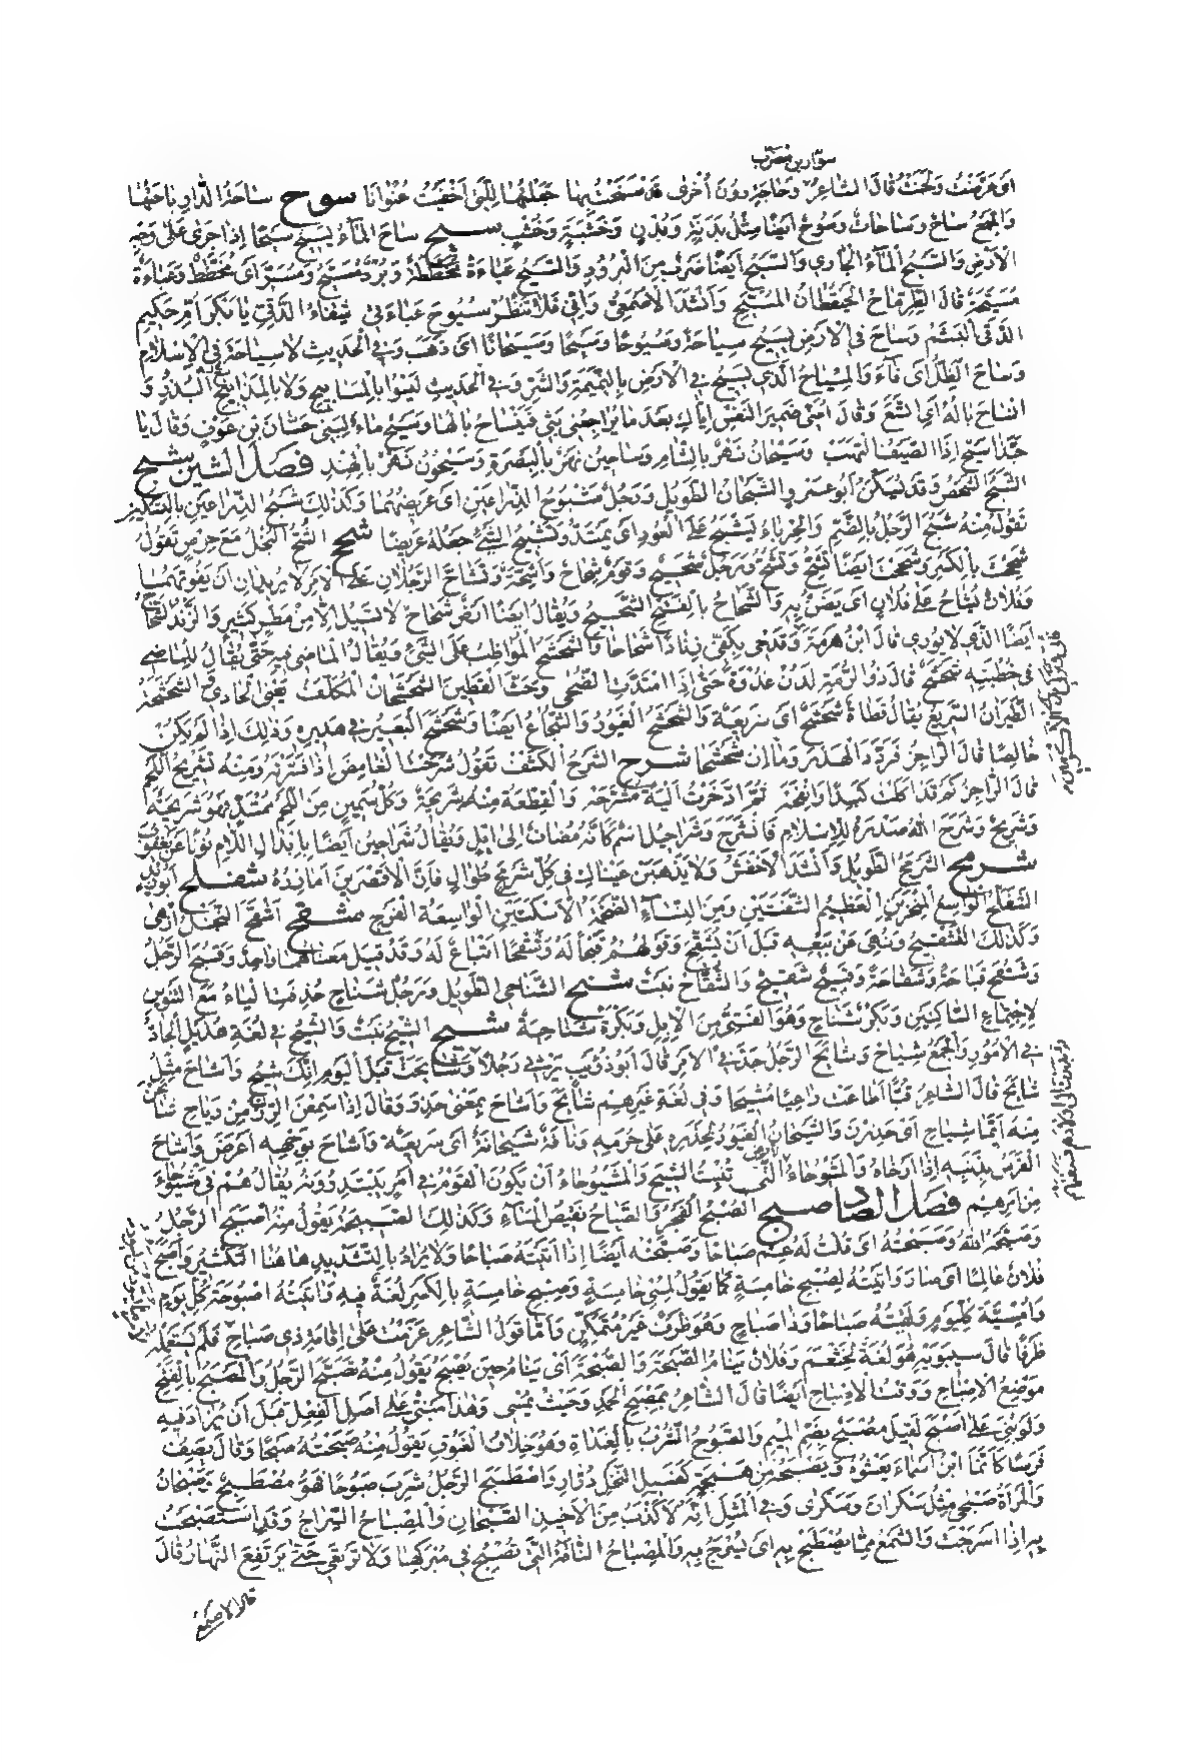 سوار بن مضرب
اى عرضت ولحنت قال الشاعر وحاجة دون اخرى قد سنحت بها جعلتها للتى اخفيت عنوانا سوح ساحة الدار باحتها
والجمع ساح وساحات وسوح ايضا مثل بدنة وبدن وخشبة وخشب سيح ساح الماء يسيح سيحا اذا جرى على وجه
الارض والسيح الماء الجارى والسيح ايضا ضرب من البرود والسيح عباءة مخططة وبرد مسيح ومسير اى مخطط وعباءة
مسيحة قال الطرماح الحيقطان المسيح وانشد الاصمعى وانى فلا تنظر سيوح عباءتى شفاء الدقى يا بكر ام حكيم
الدقى البشم وساح فى الارض يسيح سياحة وسيوحا وسيحا وسيحانا اى ذهب وفى الحديث لا سياحة فى الاسلام
وساح الظل اى فاء والمسياح الذى يسيح فى الارض بالنميمة والشر وفى الحديث ليسوا بالمساييح ولا بالمذاييع البذر و
انساح باله اى اتسع وقال امنى ضمير النفس اياك بعد ما يراجعنى بثى فينساح بالها وسيح ماء لبنى حسان بن عوف وقال يا
حبذا سيح اذا الصيف التهب وسيحان نهر بالشام وساحين نهر بالبصرة وسيحون نهر بالهند فصل الشين شبح
الشبح الشخص وقد يسكن ابو عمرو الشبحان الطويل ورجل مشبوح الذراعين اى عريضهما وكذلك شبح الذراعين بالتسكين
تقول منه شبح الرجل بالضم والحرباء يشبح على العود اى يمتد وتشبيح الشئ جعله عريضا شحح الشح البخل مع حرص تقول
شححت بالكسر وشححت ايضا تشح وتشح ورجل شحيح وقوم شحاح واشحة وتشاح الرجلان على الامر لا يريدان ان يفوتهما
وفلان يشاح على فلان اى يضن به والشحاح بالفتح الشحيح ويقال ايضا ارض شحاح لا تسيل الا من مطر كثير والزند الشحاح
ايضا الذى لا يورى قال ابن هرمة وقدحى بكفى زنادا شحاحا والشحشح المواظب على الشئ ويقال الماضى فيه حتى يقال للماضى
فى خطبته شحشح قال ذو الرمة لدن غدوة حتى اذا امتدت الضحى وحث القطين الشحشحان المكلف يعنى الحادى الشحشحة
الطيران السريع يقال قطاة شحشح اى سريعة والشحشح الغيور والشجاع ايضا وشحشح البعير فى هديره وذلك اذا لم يكن
خالصا قال الراجز فردد الهدر وما ان شحشحا شرح الشرح الكشف تقول شرحت الغامض اذا فسرته ومنه تشريح اللحم
قال الراجز كم قد اكلت كبدا وانفحه ثم ادخرت الية مشرحه والقطعة منه شريحة وكل سمين من اللحم ممتد فهو شريحة
وشريح وشرح الله صدره للاسلام فانشرح وشراحيل اسم كانه مضاف الى ايل ويقال شراحين ايضا بابدال اللام نونا عن يعقوب
شرمح الشرمح الطويل وانشد الاخفش ولا يذهبن عيناك فى كل شرمح طوال فان الاقصرين امازره شفلح ابو زيد
الشفلح الواسع المنخرين العظيم الشفتين ومن النساء الضخمة الاسكتين الواسعة الفرج شقح اشقح النخل ازهى
وكذلك التشقيح ونهى عن بيعه قبل ان يشقح وقولهم قبحا له وشقحا اتباع له وقد قيل معناهما واحد وقبح الرجل
وشقح قباحة وشقاحة وقبيح شقيح والشقاح نبت شنح الشناحى الطويل ورجل شناح حذفت الياء مع التنوين
لاجتماع الساكنين وبكر شناح وهو الفتى من الابل وبكرة شناحية شيح الشيح نبت والشيح فى لغة هذيل الجاد
فى الامور والجمع شياح وشايح الرجل جد فى الامر قال ابو ذؤيب يرثى رجلا وشايحت قبل اليوم انك شيح واشاح مثل
شايح قال الشاعر قبا اطاعت راعيا مشيحا وفى لغة غيرهم شايح واشاح بمعنى حذر وقال اذا سمعن الرز من رباح شايحن
منه ايما شياح اى حذرن والشيحان الغيور لحذره على حرمه وناقة شيحانة اى سريعة واشاح بوجهه اعرض واشاح
الفرس بذنبه اذا ارخاه والمشيوحاء الارض التى تنبت الشيح والمشيوحاء ان يكون القوم فى امر يبتدرونه يقال هم فى مشيوحاء
من امرهم فصل الصاد صبح الصبح الفجر والصباح نقيض المساء وكذلك الصبيحة يقول منه اصبح الرجل
وصبحه الله وصبحته اى قلت له عم صباحا وصبحته ايضا اذا اتيته صباحا ولا يراد بالتشديد هاهنا التكثير واصبح
فلان عالما اى صار واتيته لصبح خامسة كما يقول لمسى خامسة وصبح خامسة بالكسر لغة فيه واتيته اصبوحة كل يوم
وامسية كل يوم ولقيته صباحا وذا صباح وهو ظرف غير متمكن واما قول الشاعر عزمت على اقامة ذى صباح فلم يستعمله
ظرفا قال سيبويه هو لغة لخثعم وفلان ينام الصبحة والصبحة اى ينام حين يصبح يقول منه تصبح الرجل والمصبح بالفتح
موضع الاصباح ووقت الاصباح ايضا قال الشاعر بمصبح الحمد وحيث يمسى وهذا مبنى على اصل الفعل قبل ان يزاد فيه
ولو بنى على اصبح لقيل مصبح بضم الميم والصبوح الشرب بالغداة وهو خلاف الغبوق يقول منه صبحته صبحا وقال يصف
فرسا كان ابن اسماء يعشوه ويصبحه من هجمة كفسيل النخل درار واصطبح الرجل شرب صبوحا فهو مصطبح وصبحان
والمراة صبحى مثل سكران وسكرى وفى المثل انه لاكذب من الاخيذ الصبحان والمصباح السراج وقد استصبحت
به اذا اسرجت والشمع مما يصطبح به اى يسرج به والمصباح الناقة التى تصبح فى مبركها ولا ترتعى حتى يرتفع النهار قال
قال الاصمعى